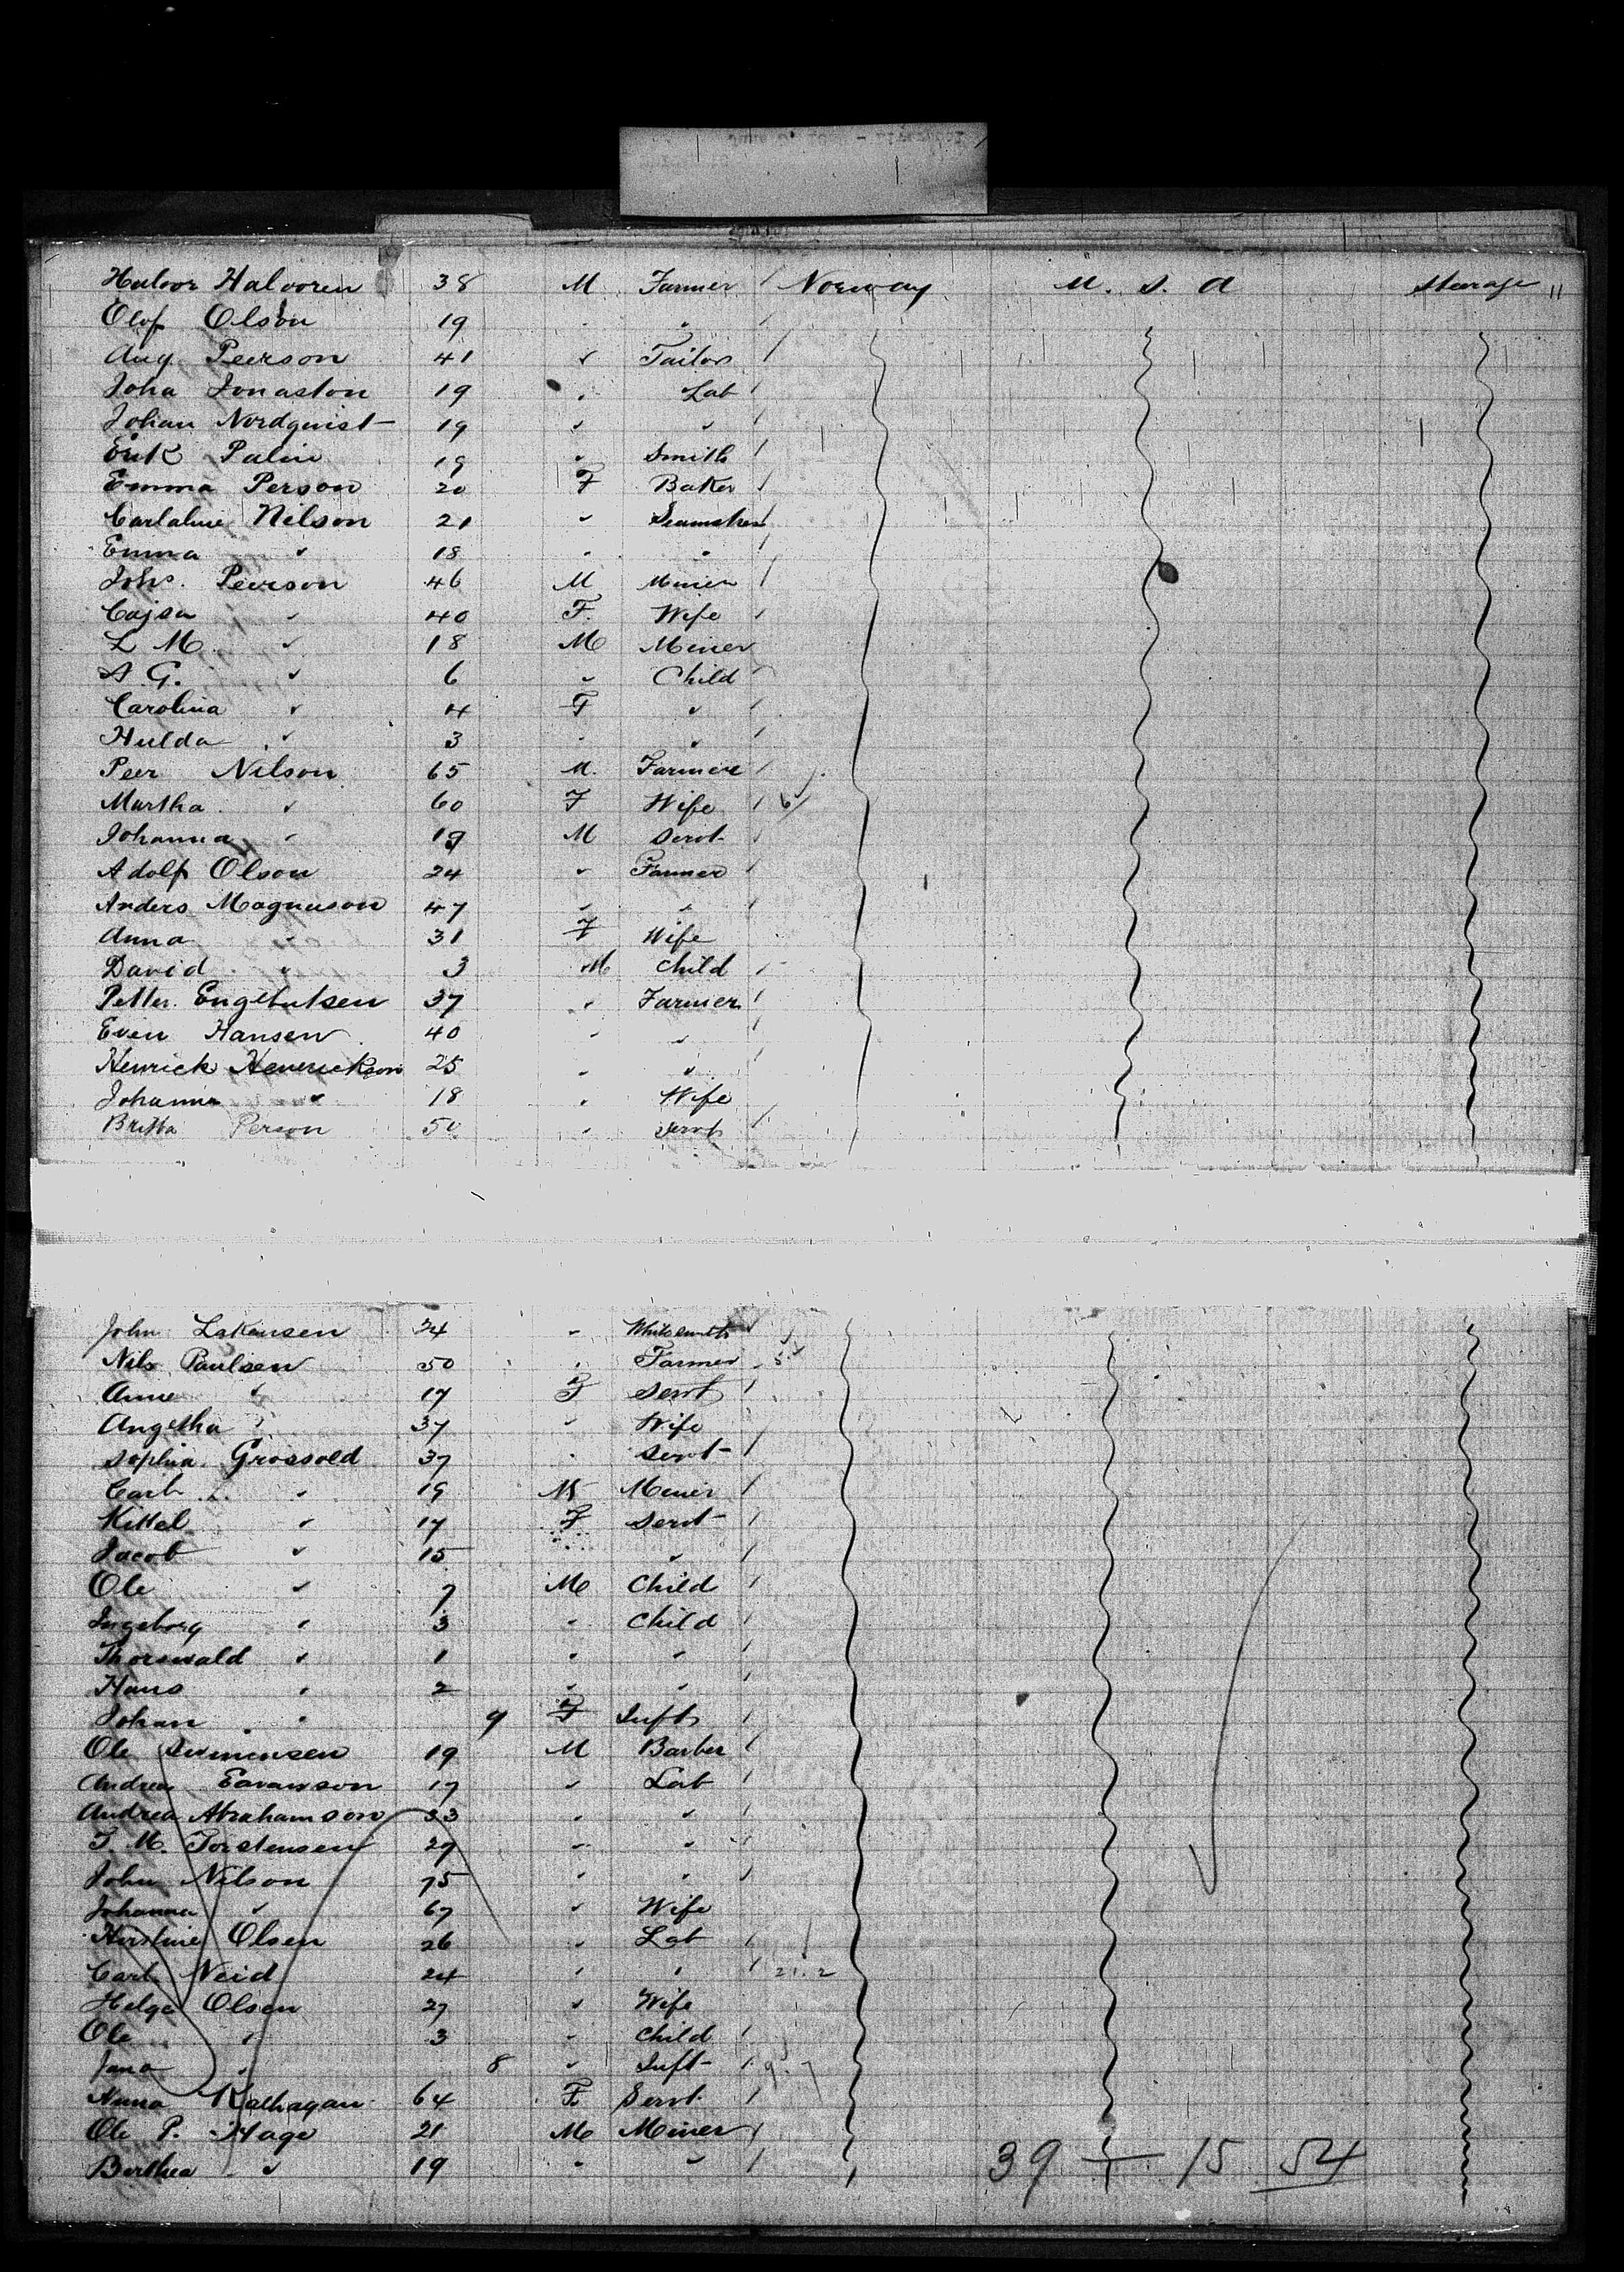 Halvor Halvoren 38 M Farmer / Norway U. S. A Stearage "
Olof Olson 19 " " /
Aug Peerson 41 " Tailor /
Joha Jonaston 19 " Lab /
Johan Nordquist 19 " " /
Erik Palin 19 " Smith /
Emma Person 20 F Baker /
Carlaline Nilson 21 " Seamstres /
Emma " 18 " " /
Johs. Peerson 46 M Miner /
Cajsa " 40 F. Wife /
L M. " 18 M Miner
A. G. " 6 " Child /
Carolina " 4 F " /
Hulda " 3 " " /
Peer Nilson 65 M. Farmer /
Martha " 60 F Wife / 6/
Johanna " 19 M Servt /
Adolf Olson 24 " Farmer /
Anders Magnuson 47 " " /
Anna " 31 F Wife
David " 3 M Child /
Petter Engebutsen 37 " Farmer /
Even Hansen 40 " " /
Henrick Henerickson 25 " " /
Johanna " 18 " Wife
Britta Person 50 " Servt /
John 24 " Whitesmith
Nils Paulsen 50 " Farmer 5
Anne " 17 F Servt /
Angetha " 37 " Wife
Sophia Grosvold 37 " Servt /
Carl " 19 M Miner /
Kittel " 17 F Servt /
Jacob " 15 " " /
Ole " 7 M Child /
Ingeborg " 3 " Child /
Thorwald " 1 " " /
Hans " 2 " " /
Johan " 9 F Inft /
Ole 19 M Barber /
Andrea 17 " Lab /
Andrea Abrahamson 33 " " /
T. M. Torstensen 29 " " /
John Nilson 75 " " /
Johanna " 67 " Wife
Olsen 26 " Lab /
Carl Neid 24 " " / 21.2
Helge Olsen 27 " Wife
Ole " 3 " Child /
Jana " 8 " Inft / 9. 7
64 F Servt /
Ole P. Hage 21 M Miner /
Berthea " 19 " " / 39 + 15 54